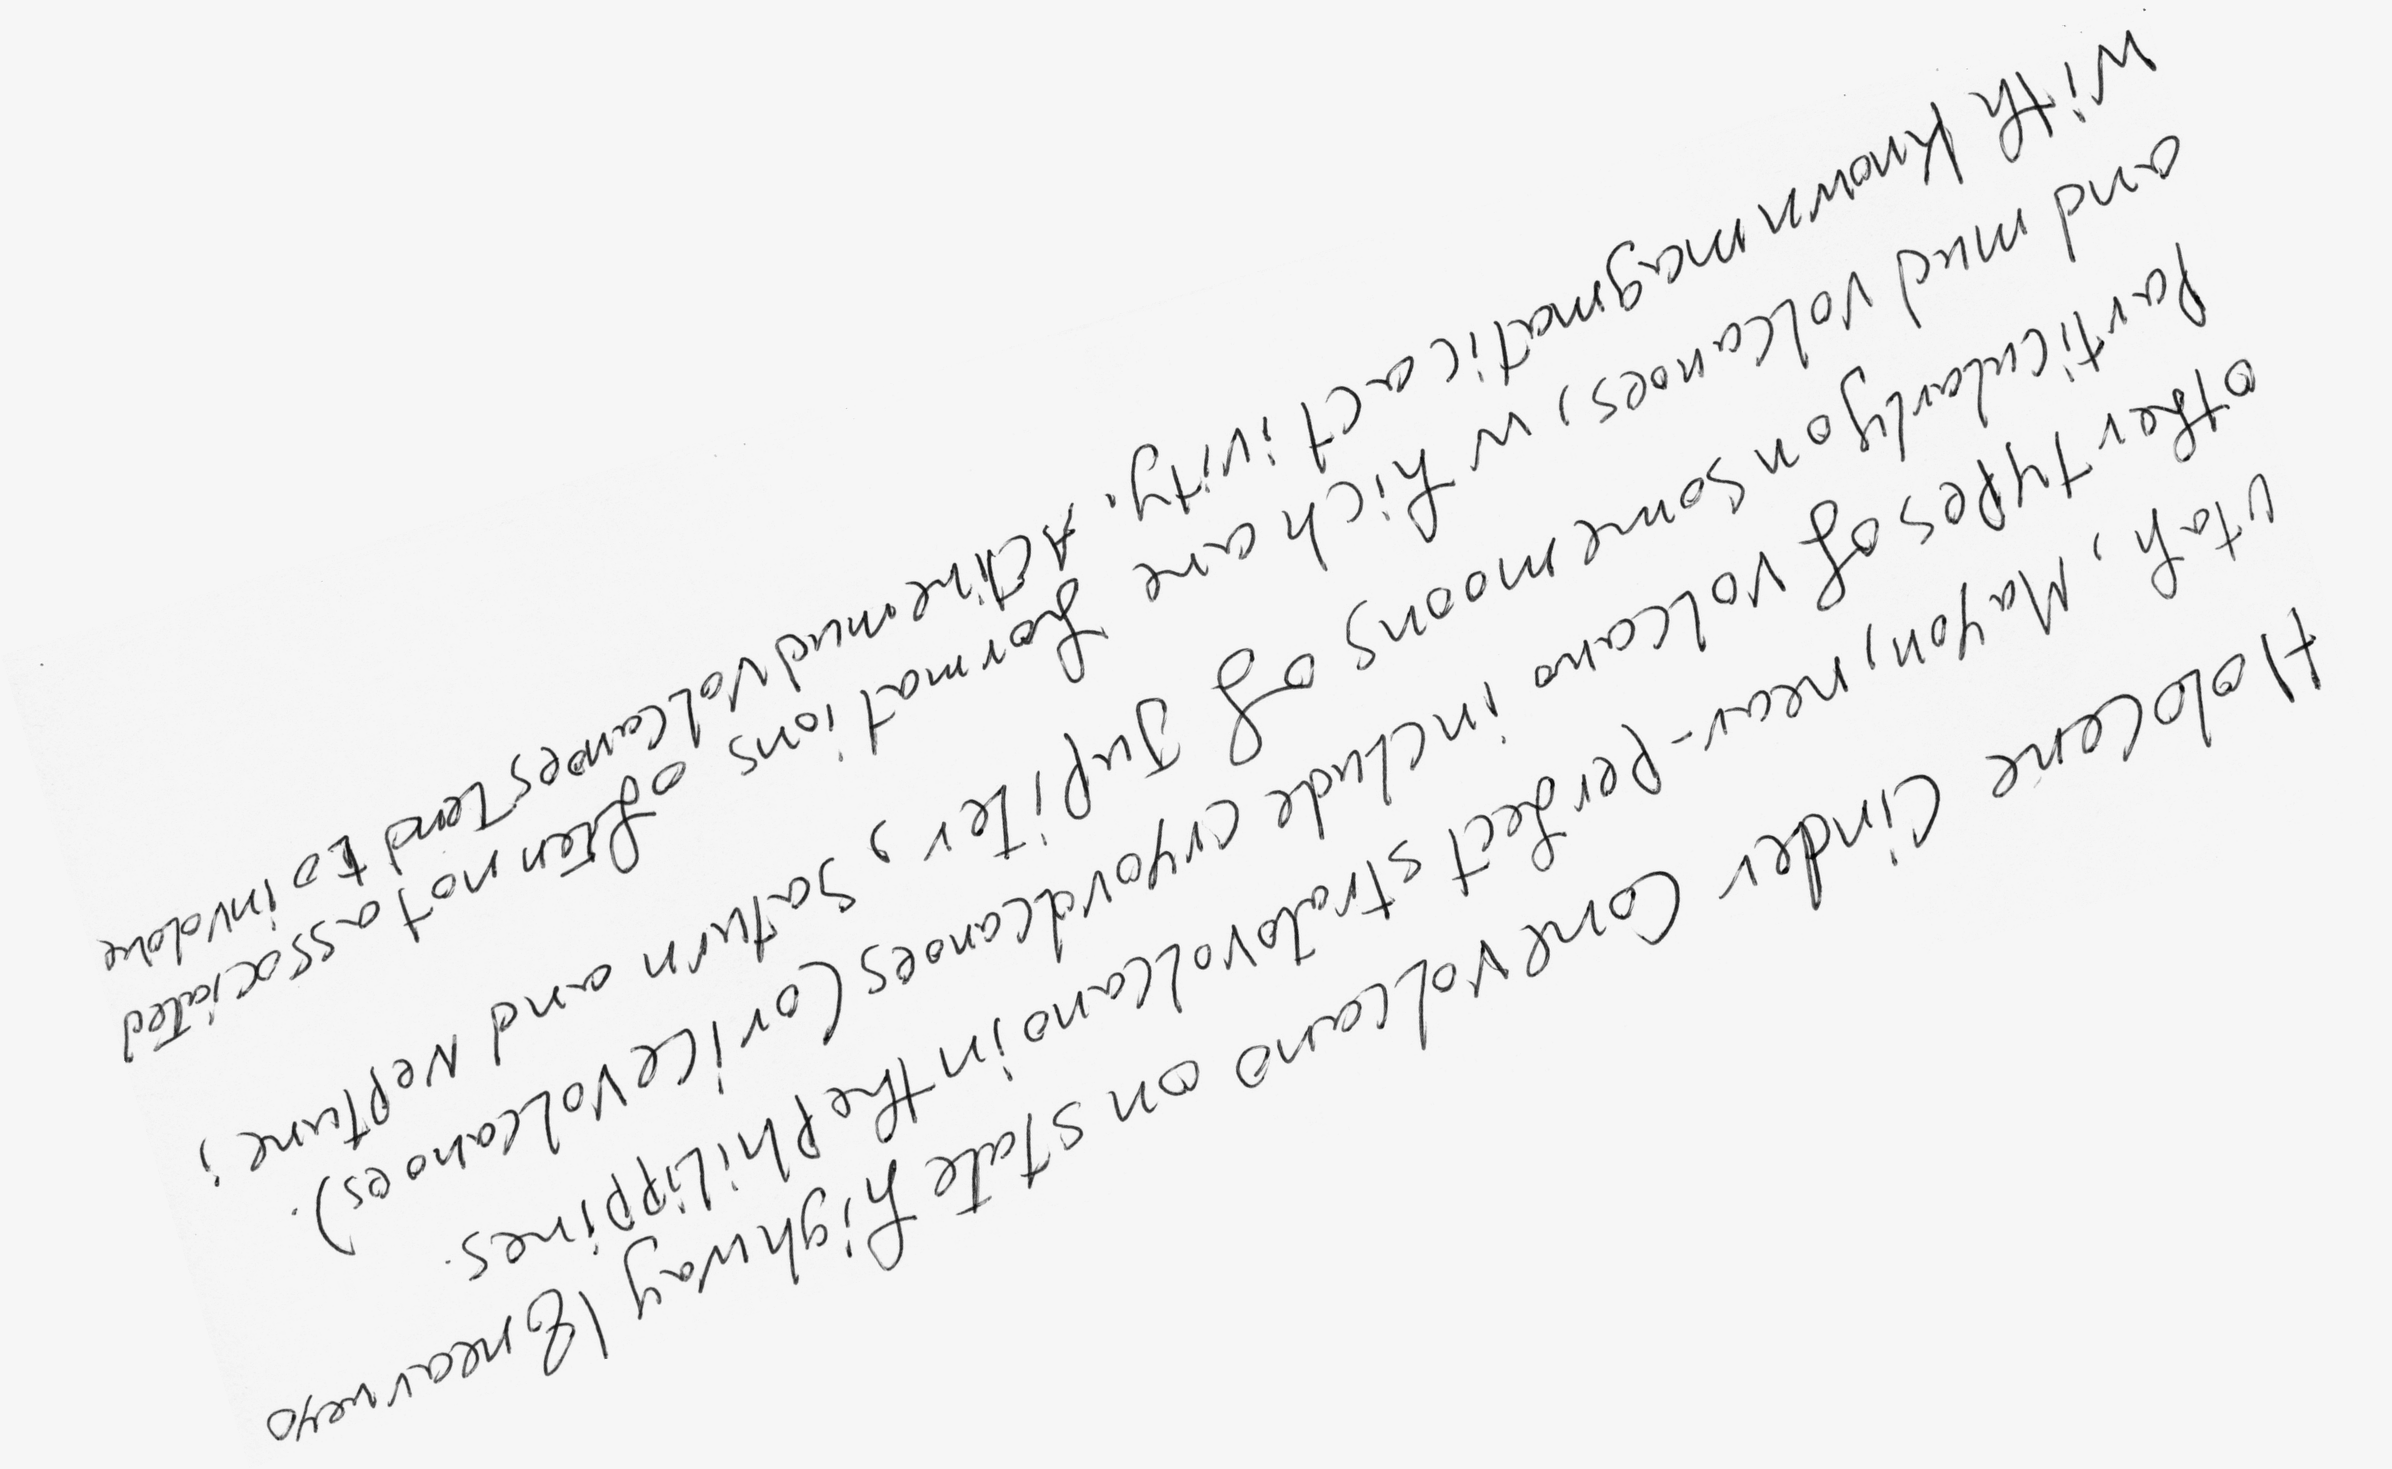 Holocene Cinder Cone volcano on state highway 18 near veyo
Utah, Mayon, near-perfect stratovolcano in the Philippines.
other types of volcano include cryovolcanoes (or ice volcanoes).
particularly on some moons of Jupiter, Saturn and Neptune;
and mud volcanoes, which are formations often not associated
with known magmatic activity. Active mud volcanoes tend to involve